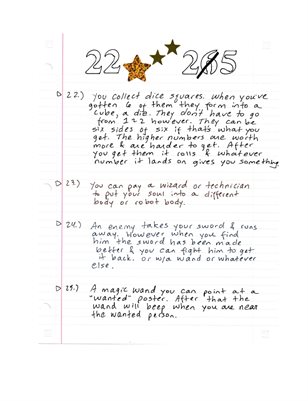 22 25
22.) You collect dice squares. When you've
gotten 6 of them they form into a
cube, a die. They don't have to go
from 1+2 however. They can be
six sides of six if that's what you
got. The higher numbers are worth
more & are harder to get. After
you get them it rolls & whatever
number it lands on gives you something
23.) You can pay a wizard or technician
to put your soul into a different
body or robot body.
24.) An enemy takes your sword & runs
away. However when you find
him the sword has been made
better & you can fight him to get
it back. or w/a wand or whatever
else.
25.) A magic wand you can point at a
"wanted" poster. After that the
wand will beep when you are near
the wanted person.